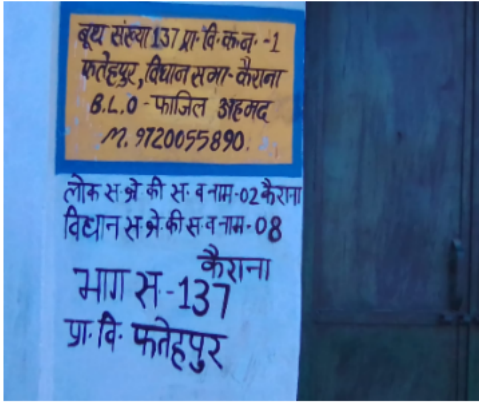 बूथ संख्या 137 प्रा॰ वि॰ क॰ न॰ -1
फतेहपुर, विधान सभा- कैराना
B.L.O - फाजिल अहमद
M. 9720055890.
लोक स॰ क्षे की स॰ व नाम-02 कैराना
विधान स॰ क्षे॰ की स॰ व नाम-08
कैराना
भाग स॰-137
प्रा॰ वि॰ फतेहपुर